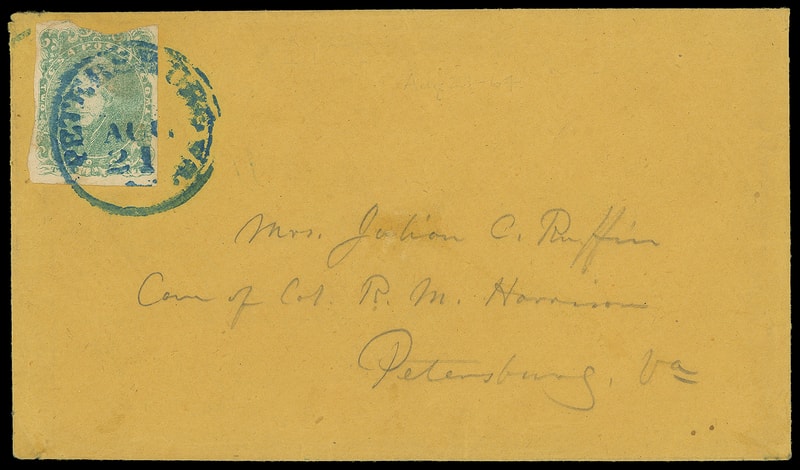 PETERSBURG VA.
AUG.
21
Mrs. Julian C. Ruffin
Care of Col. R. M. Harrison
Petersburg, Va